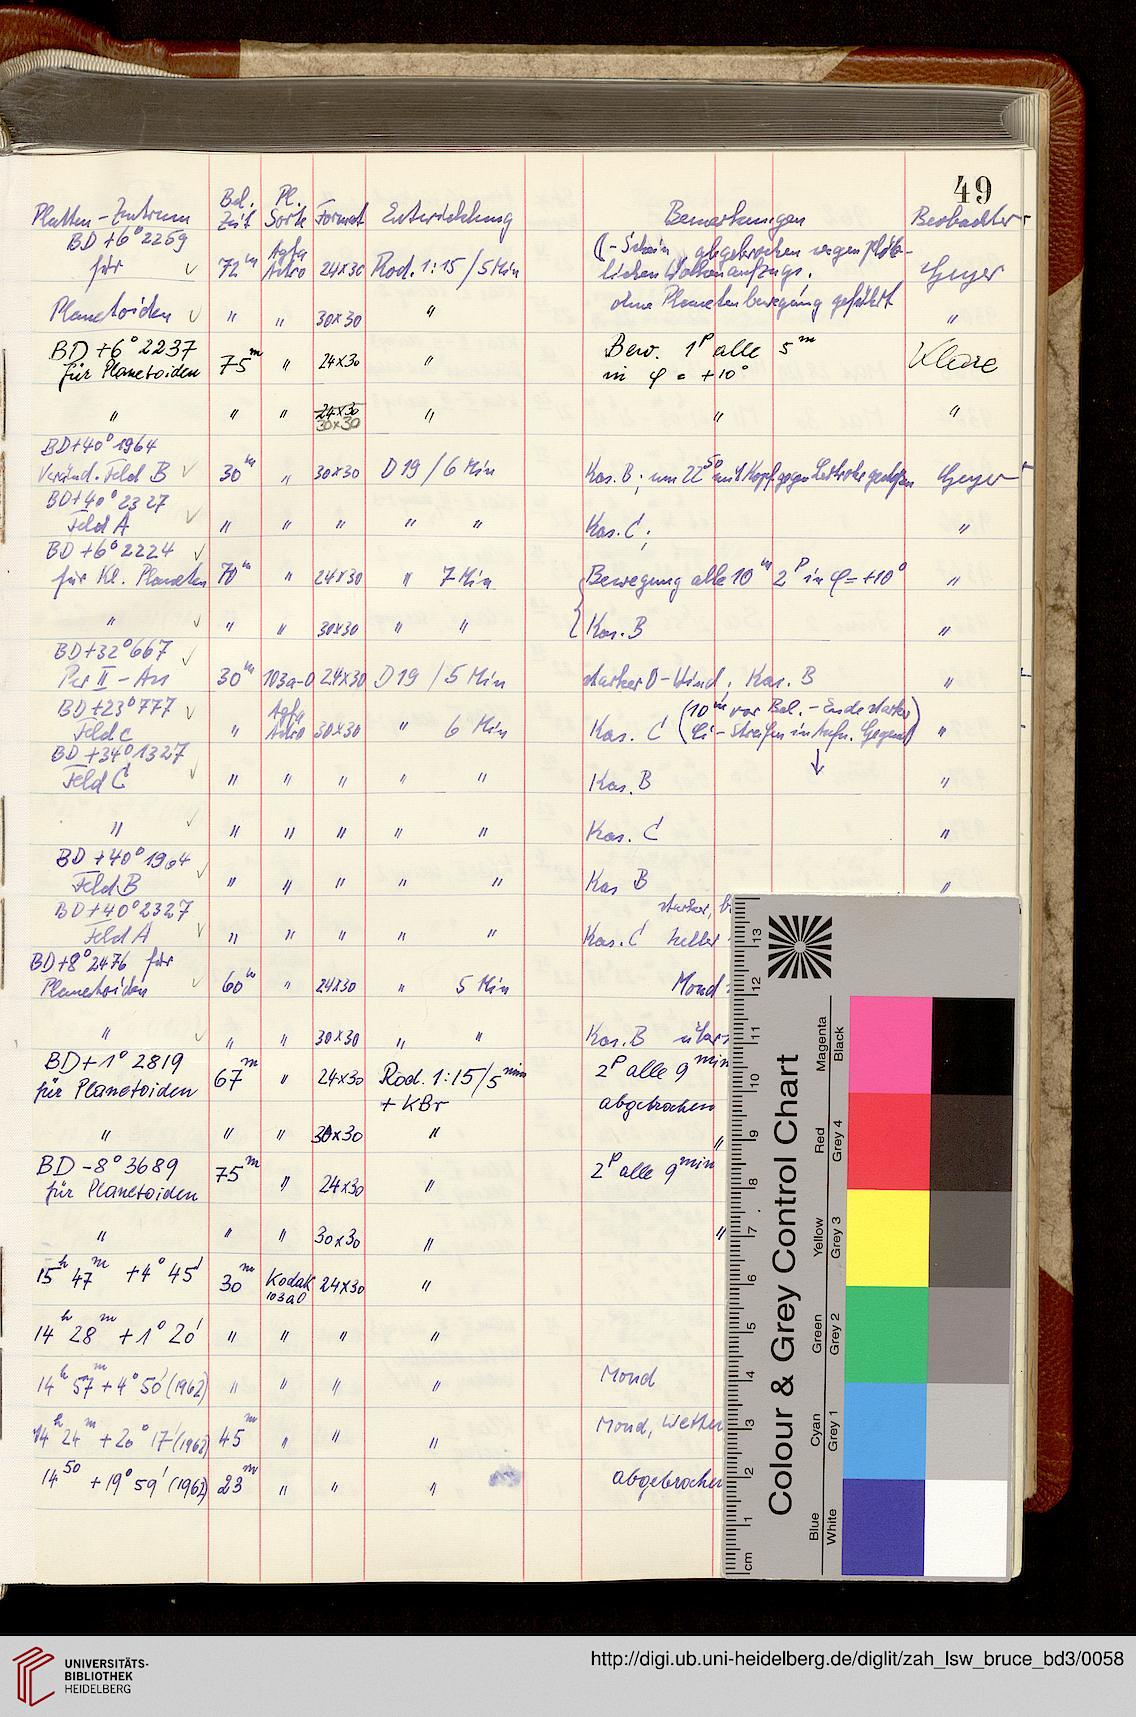 49
Platten-Zentrum Bel. Zeit Pl. Sorte Format Entwicklung Bemerkungen Beobachter
BD +6° 2259 für 72m Agfa Astro 24x30 Rod. 1:15/5 Min (-Schein, abgebrochen wegen plötz-
lichen Wolkenaufzugs. Geyer
Planetoiden " " 30x30 " ohne Planetenbewegung geführt "
BD +6° 2237
für Planetoiden 75m " 24x30 " Bew. 1P alle 5m
in φ = +10° Klare
" " " 24x30 " " "
30x30
BD+40° 1964
Veränd. Feld B 30m " 30x30 D19/6 Min Kas. B; um 22 50 mit Kopf gegen Leitrohr Geyer
BD+40° 2327
Feld A " " " " " Kas. C; "
BD +6° 2224
für Kl. Planeten 70m " 24x30 " 7 Min Bewegung alle 10m 2P in φ=+10° "
" " " 30x30 " " Kas. B "
BD+32° 667
Per II - Ass 30m 103a-O 24x30 D19/5 Min starker O-Wind; Kas. B "
BD+23° 777
Feld C " Agfa Astro 30x30 " 6 Min Kas. C (10m vor Bel.-Ende starke
Ci-Streifen in Aufn. Gegend) "
BD +34° 1327
Feld C " " " " " Kas. B "
" " " " " " Kas. C "
BD +40° 1964
Feld B " " " " " Kas B "
BD+40° 2327
Feld A " " " " " starker,
Kas. C heller
BD+8° 2476 für
Planetoiden 60m " 24x30 " 5 Min Mond
" " " 30x30 " " Kas. B
BD+1° 2819
für Planetoiden 67m " 24x30 Rod. 1:15/5min 2P alle 9min
+ KBr abgebrochen
" " " 30x30 " "
BD -8° 3689
für Planetoiden 75m " 24x30 " 2P alle 9min
" " " 30x30 " "
15h 47m +4° 45' 30m Kodak 103aO 24x30 "
14h 28m +1° 20' " " " "
14h 57m +4° 50' (1962) " " " " Mond
14h 24m +20° 17' (1962) 45m " " " Mond,
14 50 +19° 59' (1962) 23m " " " abgebrochen
Colour & Grey Control Chart
Blue Cyan Green Yellow Red Magenta
White Grey 1 Grey 2 Grey 3 Grey 4 Black
cm 1 2 3 4 5 6 7 8 9 10 11 12 13
UNIVERSITÄTS-
BIBLIOTHEK
HEIDELBERG
http://digi.ub.uni-heidelberg.de/diglit/zah_lsw_bruce_bd3/0058